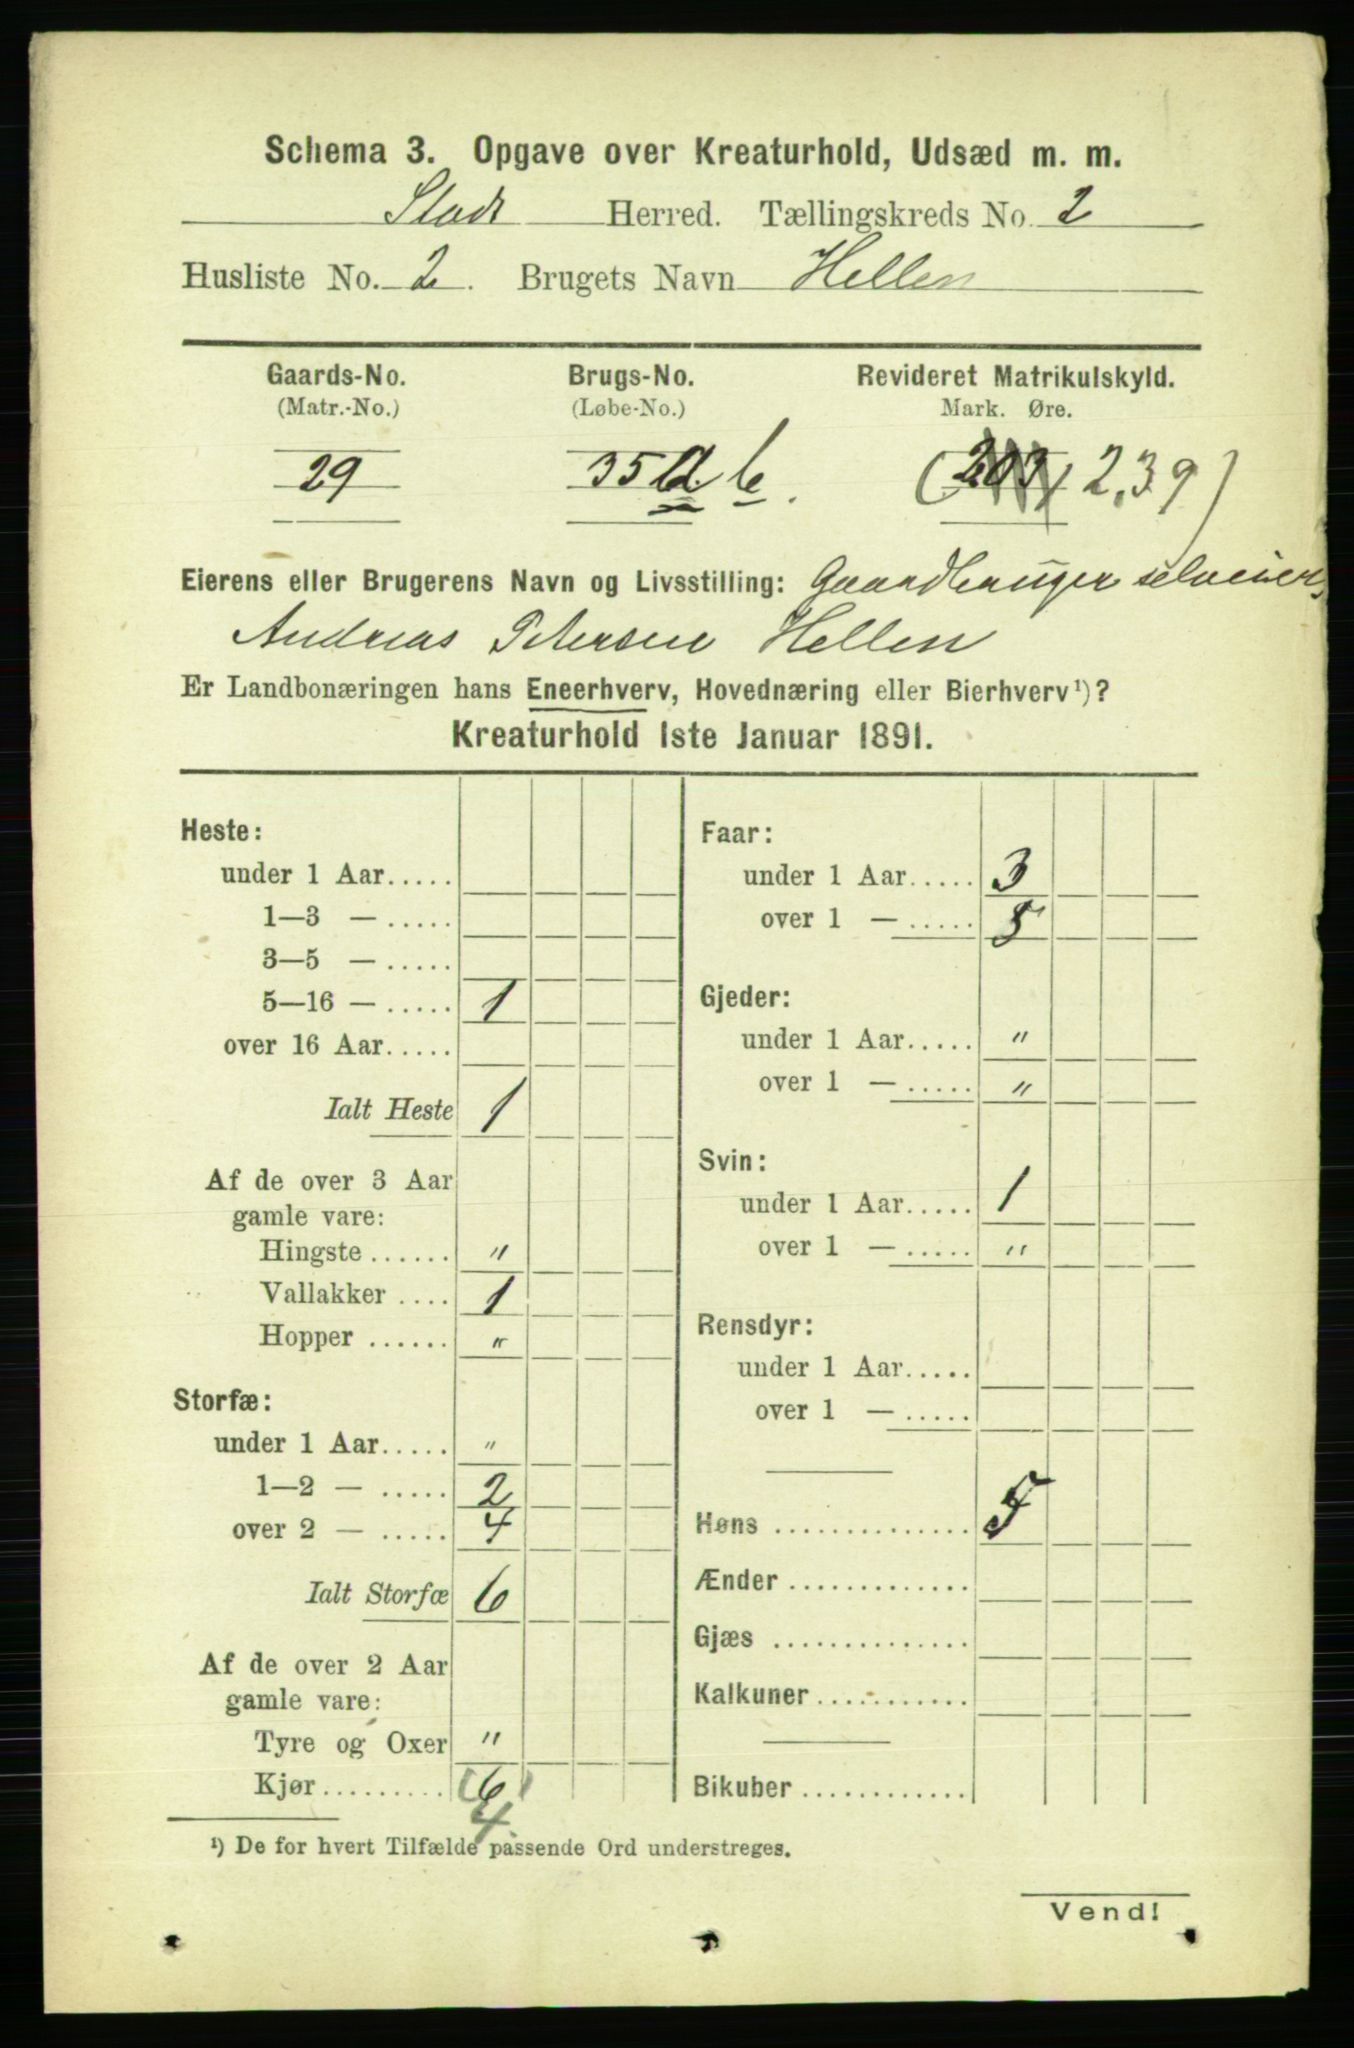 Schema 3. Opgave over Kreaturhold, Udsæd m. m.
Stadt Herred. Tællingskreds No. 2
Husliste No. 2. Brugets Navn Hellen
Gaards-No. Brugs-No. Revideret Matrikulskyld.
(Matr.-No.) (Løbe-No.) Mark. Øre.
29 35 a. b. (203, 2,39)
Eierens eller Brugerens Navn og Livsstilling: Gaardbruger selveier
Andreas Petersen Hellen
Er Landbonæringen hans Eneerhverv, Hovednæring eller Bierhverv¹)?
Kreaturhold 1ste Januar 1891.
Heste:
under 1 Aar.....
1—3 — .....
3—5 — .....
5—16 — ..... 1
over 16 Aar.....
Ialt Heste 1
Af de over 3 Aar
gamle vare:
Hingste...... "
Vallakker .... 1
Hopper ...... "
Storfæ:
under 1 Aar..... "
1—2 — ..... 2
over 2 — ..... 4
Ialt Storfæ 6
Af de over 2 Aar
gamle vare:
Tyre og Oxer "
Kjør......... (6)
4
Faar:
under 1 Aar..... 3
over 1 — ..... 5
Gjeder:
under 1 Aar..... "
over 1 — ..... "
Svin:
under 1 Aar..... 1
over 1 — ..... "
Rensdyr:
under 1 Aar.....
over 1 — .....
Høns .............. 5
Ænder .............
Gjæs ..............
Kalkuner...........
Bikuber ............
¹) De for hvert Tilfælde passende Ord understreges.
Vend!